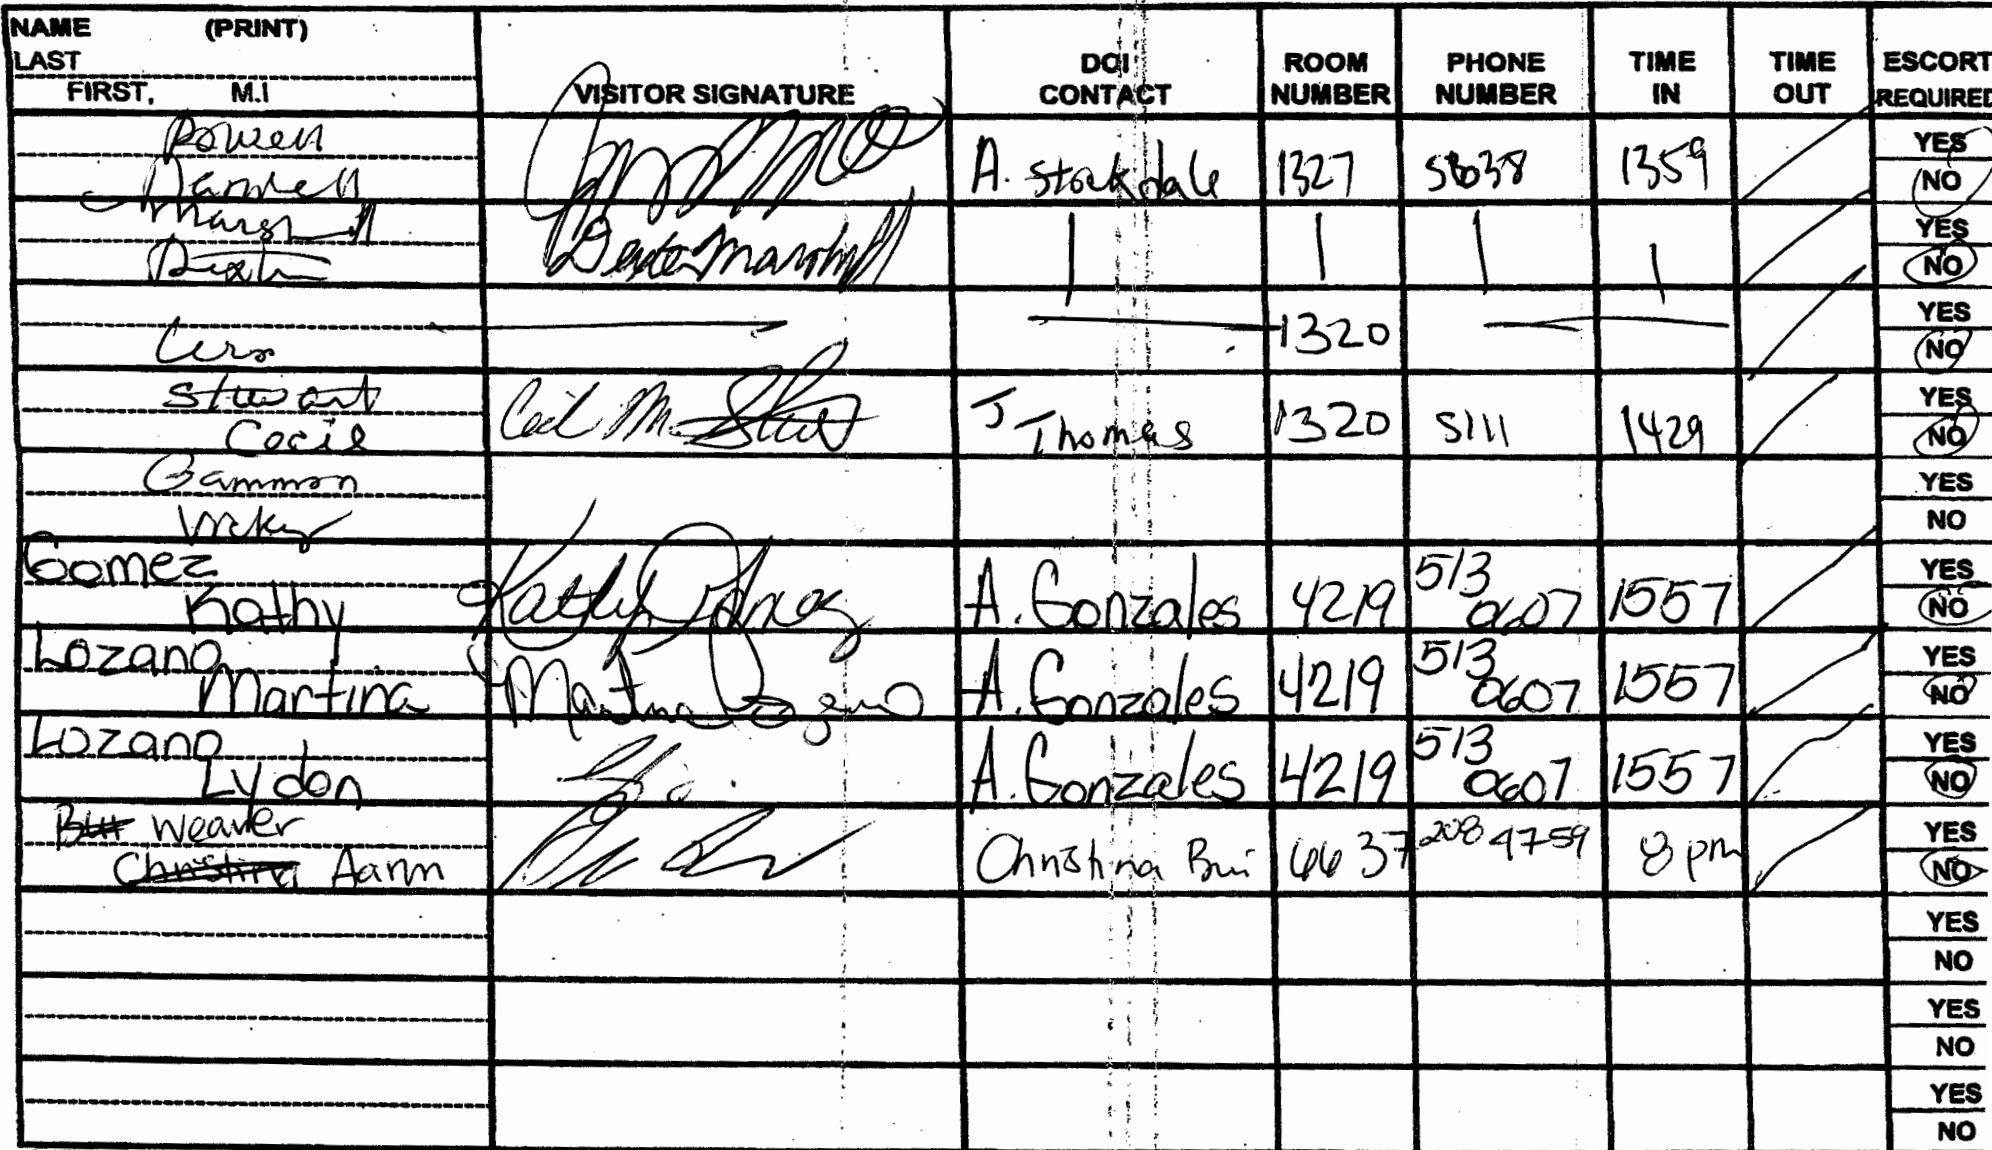 NAME (PRINT)
LAST
FIRST, M.I
VISITOR SIGNATURE
DOI CONTACT
ROOM NUMBER
PHONE NUMBER
TIME IN
TIME OUT
ESCORT REQUIRED
Powell
Darnell
A. Stockdale 1327 1359
YES
NO
Marshall
Dexter
Dexter Marshall
YES
NO
1320
YES
NO
Stewart
Cecil
Cecil M. Stewart
J Thomas 1320 5111 1429
YES
NO
Gammon
Vicky
YES
NO
Gomez
Kathy
Kathy Gomez
A. Gonzales 4219 513 0607 1557
YES
NO
Lozano
Martina
Martina Lozano
A. Gonzales 4219 513 0607 1557
YES
NO
Lozano
Lydon
A. Gonzales 4219 513 0607 1557
YES
NO
Bui Weaver
Christina Aaron
Christina Bui 6637 208 4759 8 pm
YES
NO
YES
NO
YES
NO
YES
NO